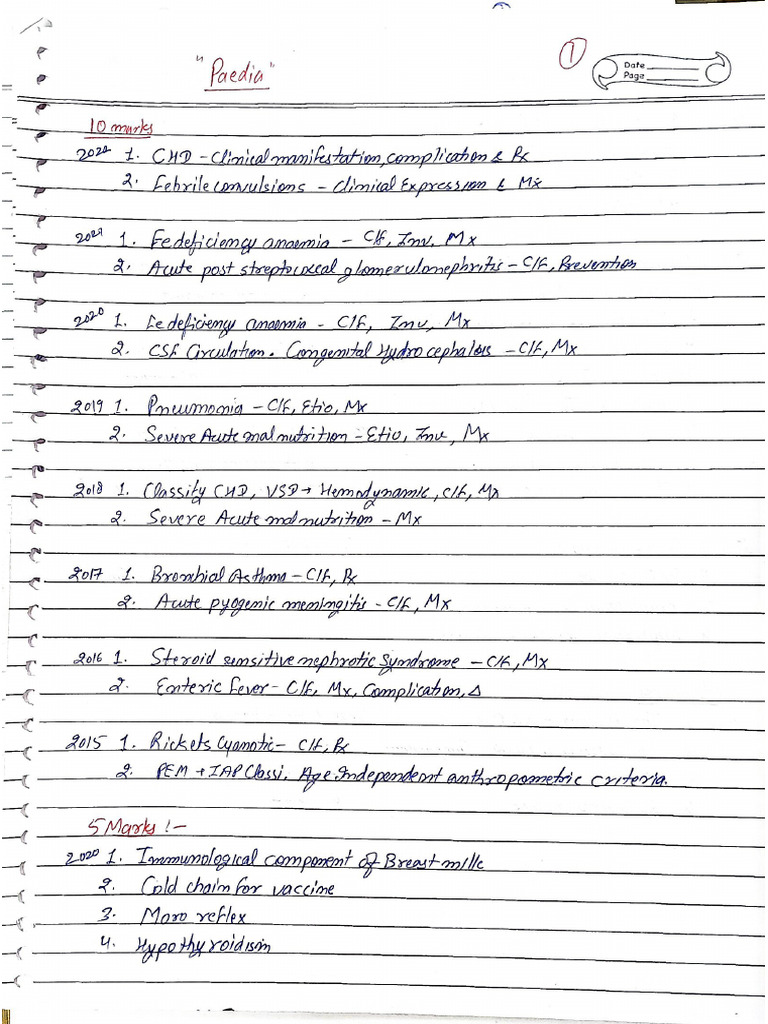 "Paedia"
1
Date
Page
10 marks
2022 1. CHD - Clinical manifestation, complication & Rx
2. Febrile convulsions - Clinical Expression & Mx
2021 1. Fe deficiency anaemia - C/f, Inv, Mx
2. Acute post streptococcal glomerulonephritis - C/f, Prevention
2020 1. Fe deficiency anaemia - C/f, Inv, Mx
2. CSF Circulation. Congenital Hydrocephalus - C/f, Mx
2019 1. Pneumonia - C/f, Etio, Mx
2. Severe Acute malnutrition - Etio, Inv, Mx
2018 1. Classify CHD, VSD → Hemodynamic, C/f, Mx
2. Severe Acute malnutrition - Mx
2017 1. Bronchial Asthma - C/f, Rx
2. Acute pyogenic meningitis - C/f, Mx
2016 1. Steroid sensitive nephrotic Syndrome - C/f, Mx
2. Enteric Fever - C/f, Mx, Complication, Δ
2015 1. Rickets Cyanotic - C/f, Rx
2. PEM → IAP Classi. Age Independent anthropometric criteria.
5 Marks :-
2020 1. Immunological component of Breast milk
2. Cold chain for vaccine
3. Moro reflex
4. Hypothyroidism